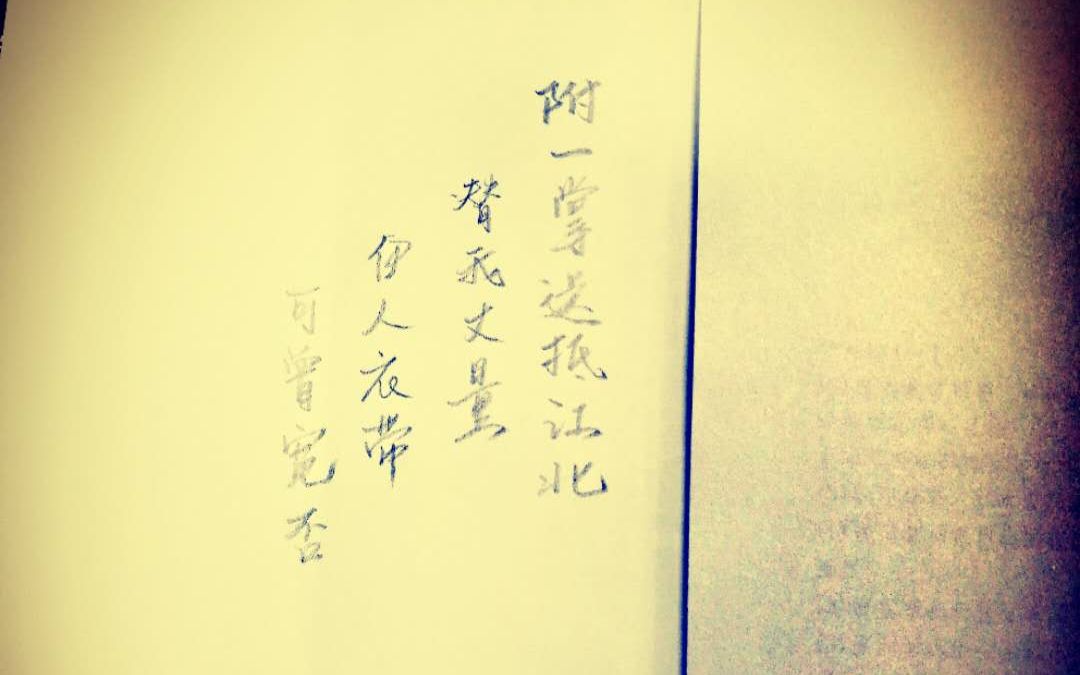 附一掌送抵江北
替我丈量
伊人衣带
可曾宽否